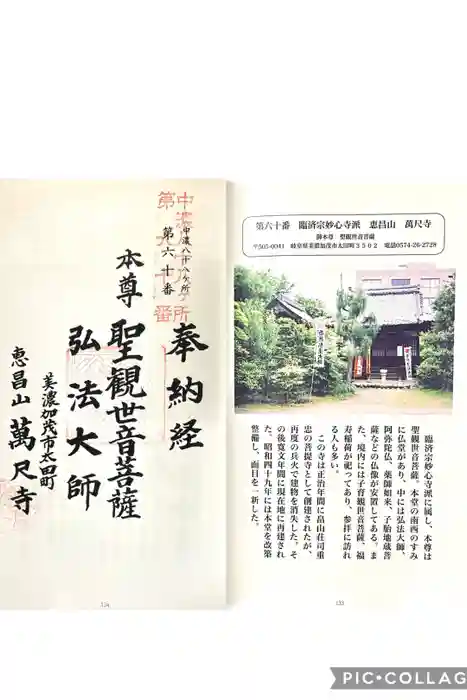 第六十番　臨済宗妙心寺派　恵昌山　萬尺寺
御本尊　聖観世音菩薩
〒505-0041　岐阜県美濃加茂市太田町3502　電話0574-26-2728
臨済宗妙心寺派に属し、本尊は
聖観世音菩薩。本堂の南西のすみ
に仏堂があり、中には弘法大師、
阿弥陀仏、薬師如来、子胎地蔵菩
薩などの仏像が安置してある。ま
た、境内には子育観世音菩薩、福
寿稲荷が祀ってあり、参拝に訪れ
る人も多い。
この寺は正治年間に畠山荘司重
忠の菩提寺として創建されたが、
再度の兵火で建物を消失した。そ
の後寛文年間に現在地に再建され
た。昭和四十九年には本堂を改築
整備し、面目を一新した。
133
中濃八十八ヶ所
第六十番
奉納経
本尊　聖観世音菩薩
弘法大師
美濃加茂市太田町
恵昌山　萬尺寺
134
PIC•COLLAG